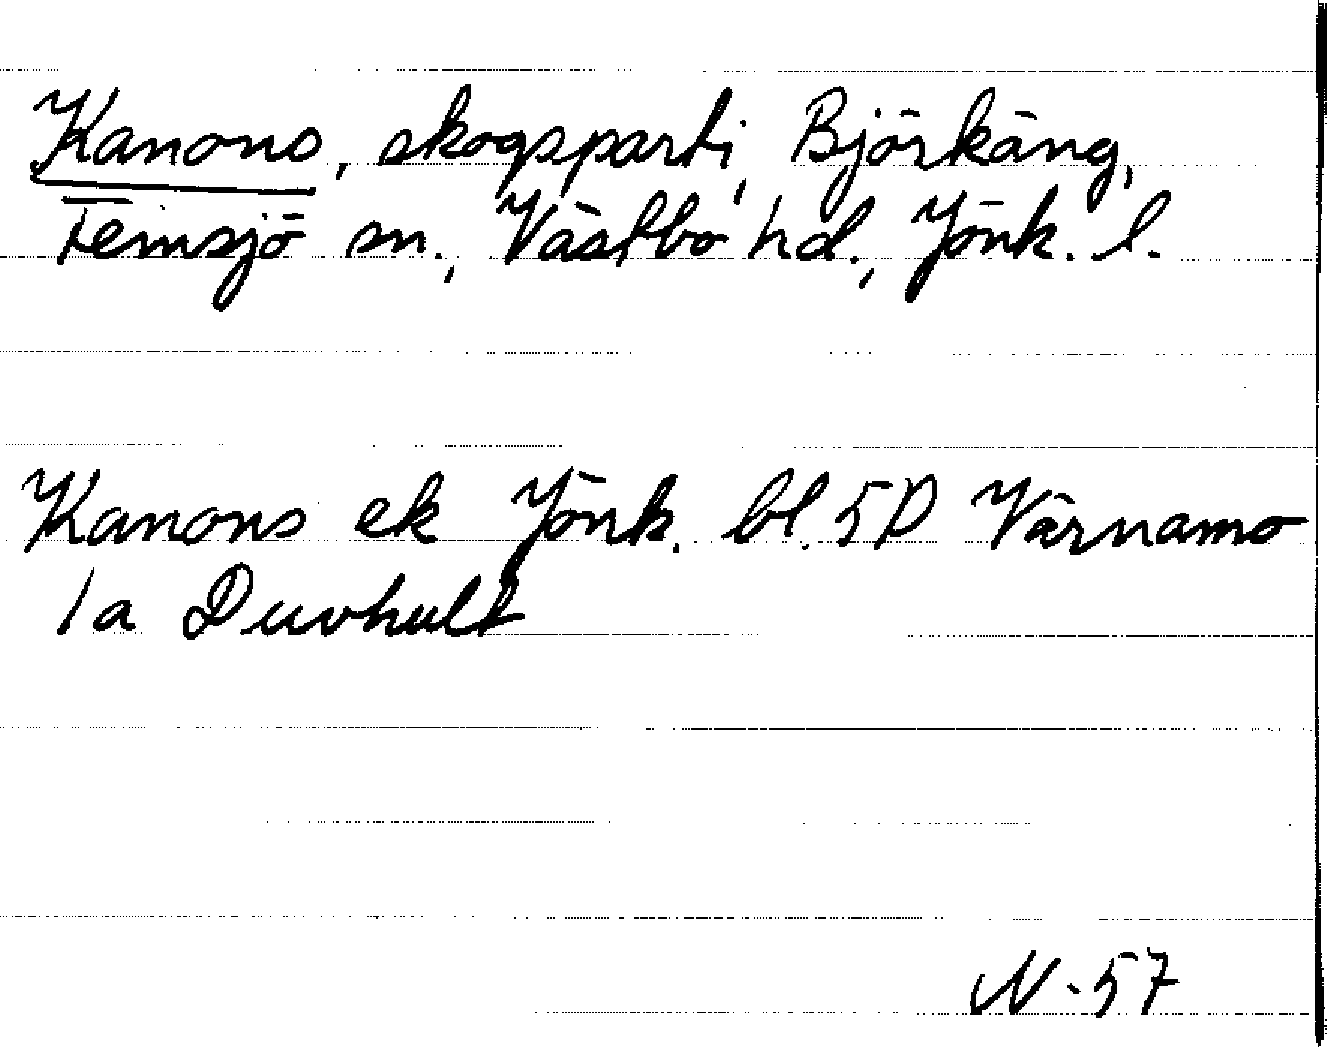 Kanons, skogsparti, Björkäng,
Femsjö sn., Västbo hd., Jönk. l.
Kanons ek Jönk. bl. 5D Värnamo
1a Duvhult
N-57